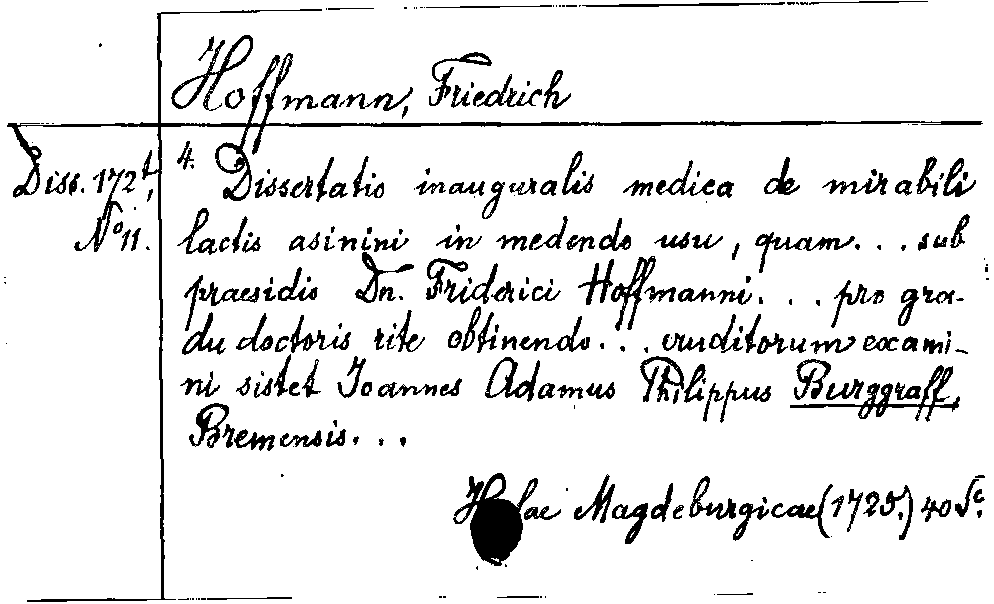 Hoffmann, Friedrich
Diss. 172t,
No 11.
4. Dissertatio inauguralis medica de mirabili
lactis asinini in medendo usu, quam... sub
praesidio Dn. Friderici Hoffmanni... pro gra-
du doctoris rite obtinendo... eruditorum exami-
ni sistet Ioannes Adamus Philippus Burggraff,
Bremensis...
Magdeburgicae (1725.) 40 S.